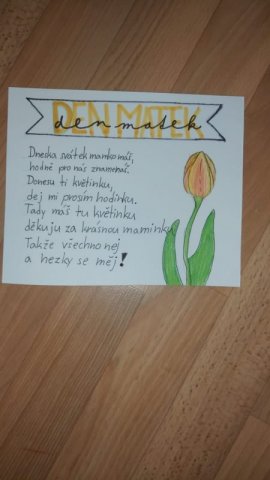 DEN MATEK
den matek
Dneska svátek mamko máš,
hodně pro nás znamenáš.
Donesu ti květinku,
dej mi prosím hodinku.
Tady máš tu květinku
děkuju za krásnou maminku
Takže všechno nej
a hezky se měj!